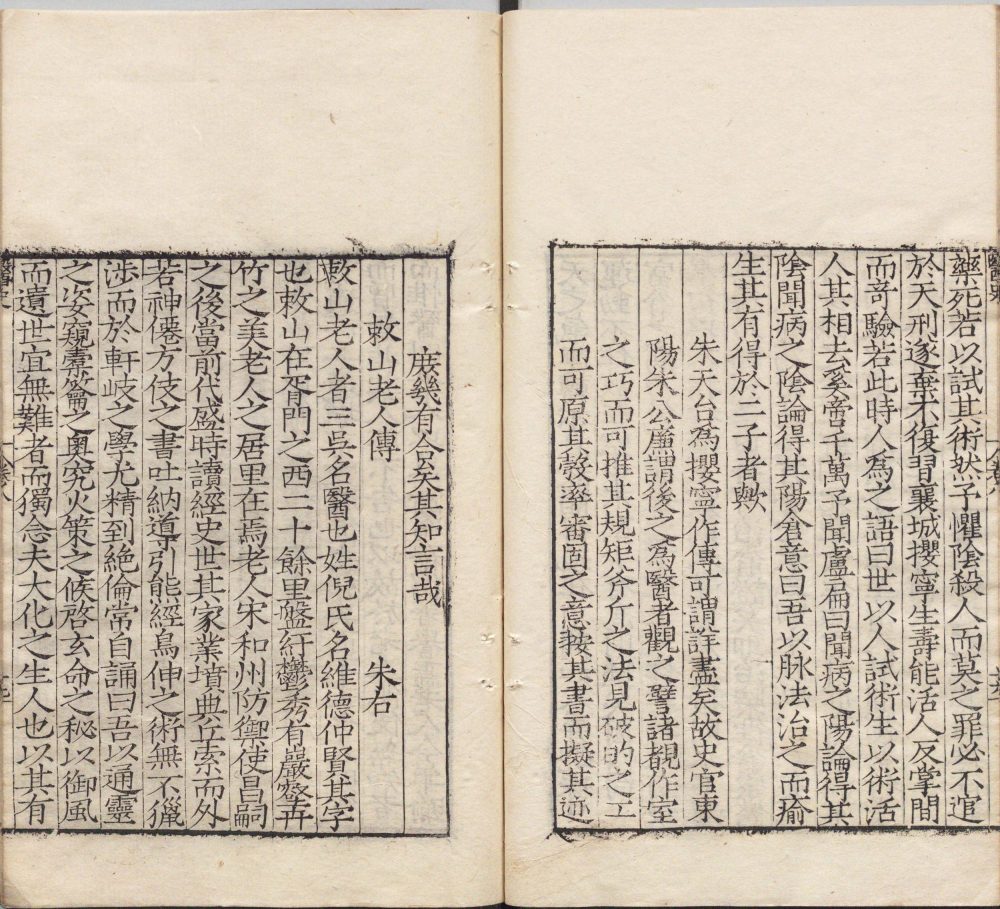 藥死若以試其術然予懼陰殺人而莫之罪必不逭
於天刑遂棄不復習襄城攖寧生壽能活人反掌間
而奇驗若此時人為之語曰世以人試術生以術活
人其相去奚啻千萬予聞盧扁曰聞病之陽論得其
陰聞病之陰論得其陽倉意曰吾以脉法治之而瘉
生其有得於二子者歟
朱天台為攖寧作傳可謂詳盡矣故史官東
陽朱公廬謂後之為醫者觀之譬諸覩作室
之巧而可推其規矩斧斤之法見破的之工
而可原其彀率審固之意按其書而擬其迹
庻幾有合矣其知言哉
敕山老人傳 朱右
敕山老人者三吳名醫也姓倪氏名維德仲賢其字
也敕山在胥門之西二十餘里盤紆鬱秀有嚴壑弄
竹之美老人之居里在焉老人宋和州防禦使昌嗣
之後當前代盛時讀經史世其家業墳典丘索而外
若神僊方伎之書吐納導引能經鳥伸之術無不獵
涉而於軒岐之學尤精到絶倫常自誦曰吾以通靈
之姿窺橐籥之奥究火策之候啓玄命之秘以御風
而遺世宜無難者而獨念夫大化之生人也以其有
醫史
卷八